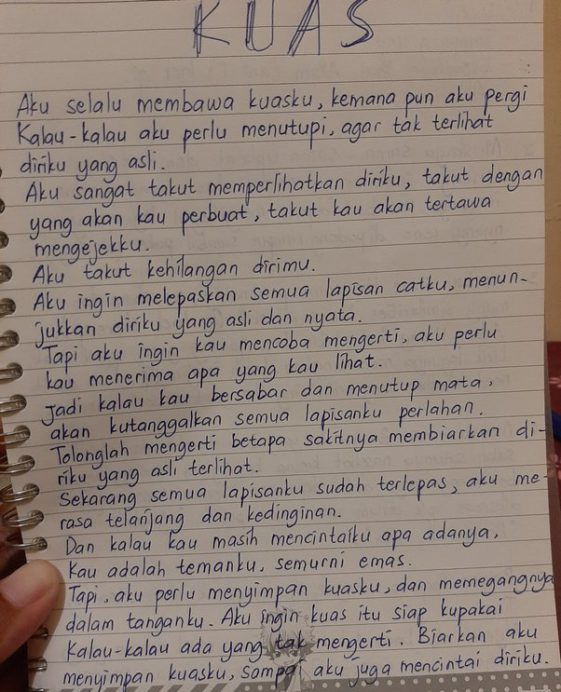 KUAS
Aku selalu membawa kuasku, kemana pun aku pergi
Kalau-kalau aku perlu menutupi, agar tak terlihat
diriku yang asli.
Aku sangat takut memperlihatkan diriku, takut dengan
yang akan kau perbuat, takut kau akan tertawa
mengejekku.
Aku takut kehilangan dirimu.
Aku ingin melepaskan semua lapisan catku, menun-
jukkan diriku yang asli dan nyata.
Tapi aku ingin kau mencoba mengerti, aku perlu
kau menerima apa yang kau lihat.
Jadi kalau kau bersabar dan menutup mata,
akan kutanggalkan semua lapisanku perlahan.
Tolonglah mengerti betapa sakitnya membiarkan di-
riku yang asli terlihat.
Sekarang semua lapisanku sudah terlepas, aku me-
rasa telanjang dan kedinginan.
Dan kalau kau masih mencintaiku apa adanya,
Kau adalah temanku, semurni emas.
Tapi, aku perlu menyimpan kuasku, dan memegangnya
dalam tanganku. Aku ingin kuas itu siap kupakai
Kalau-kalau ada yang tak mengerti. Biarkan aku
menyimpan kuasku, sampai aku juga mencintai diriku.